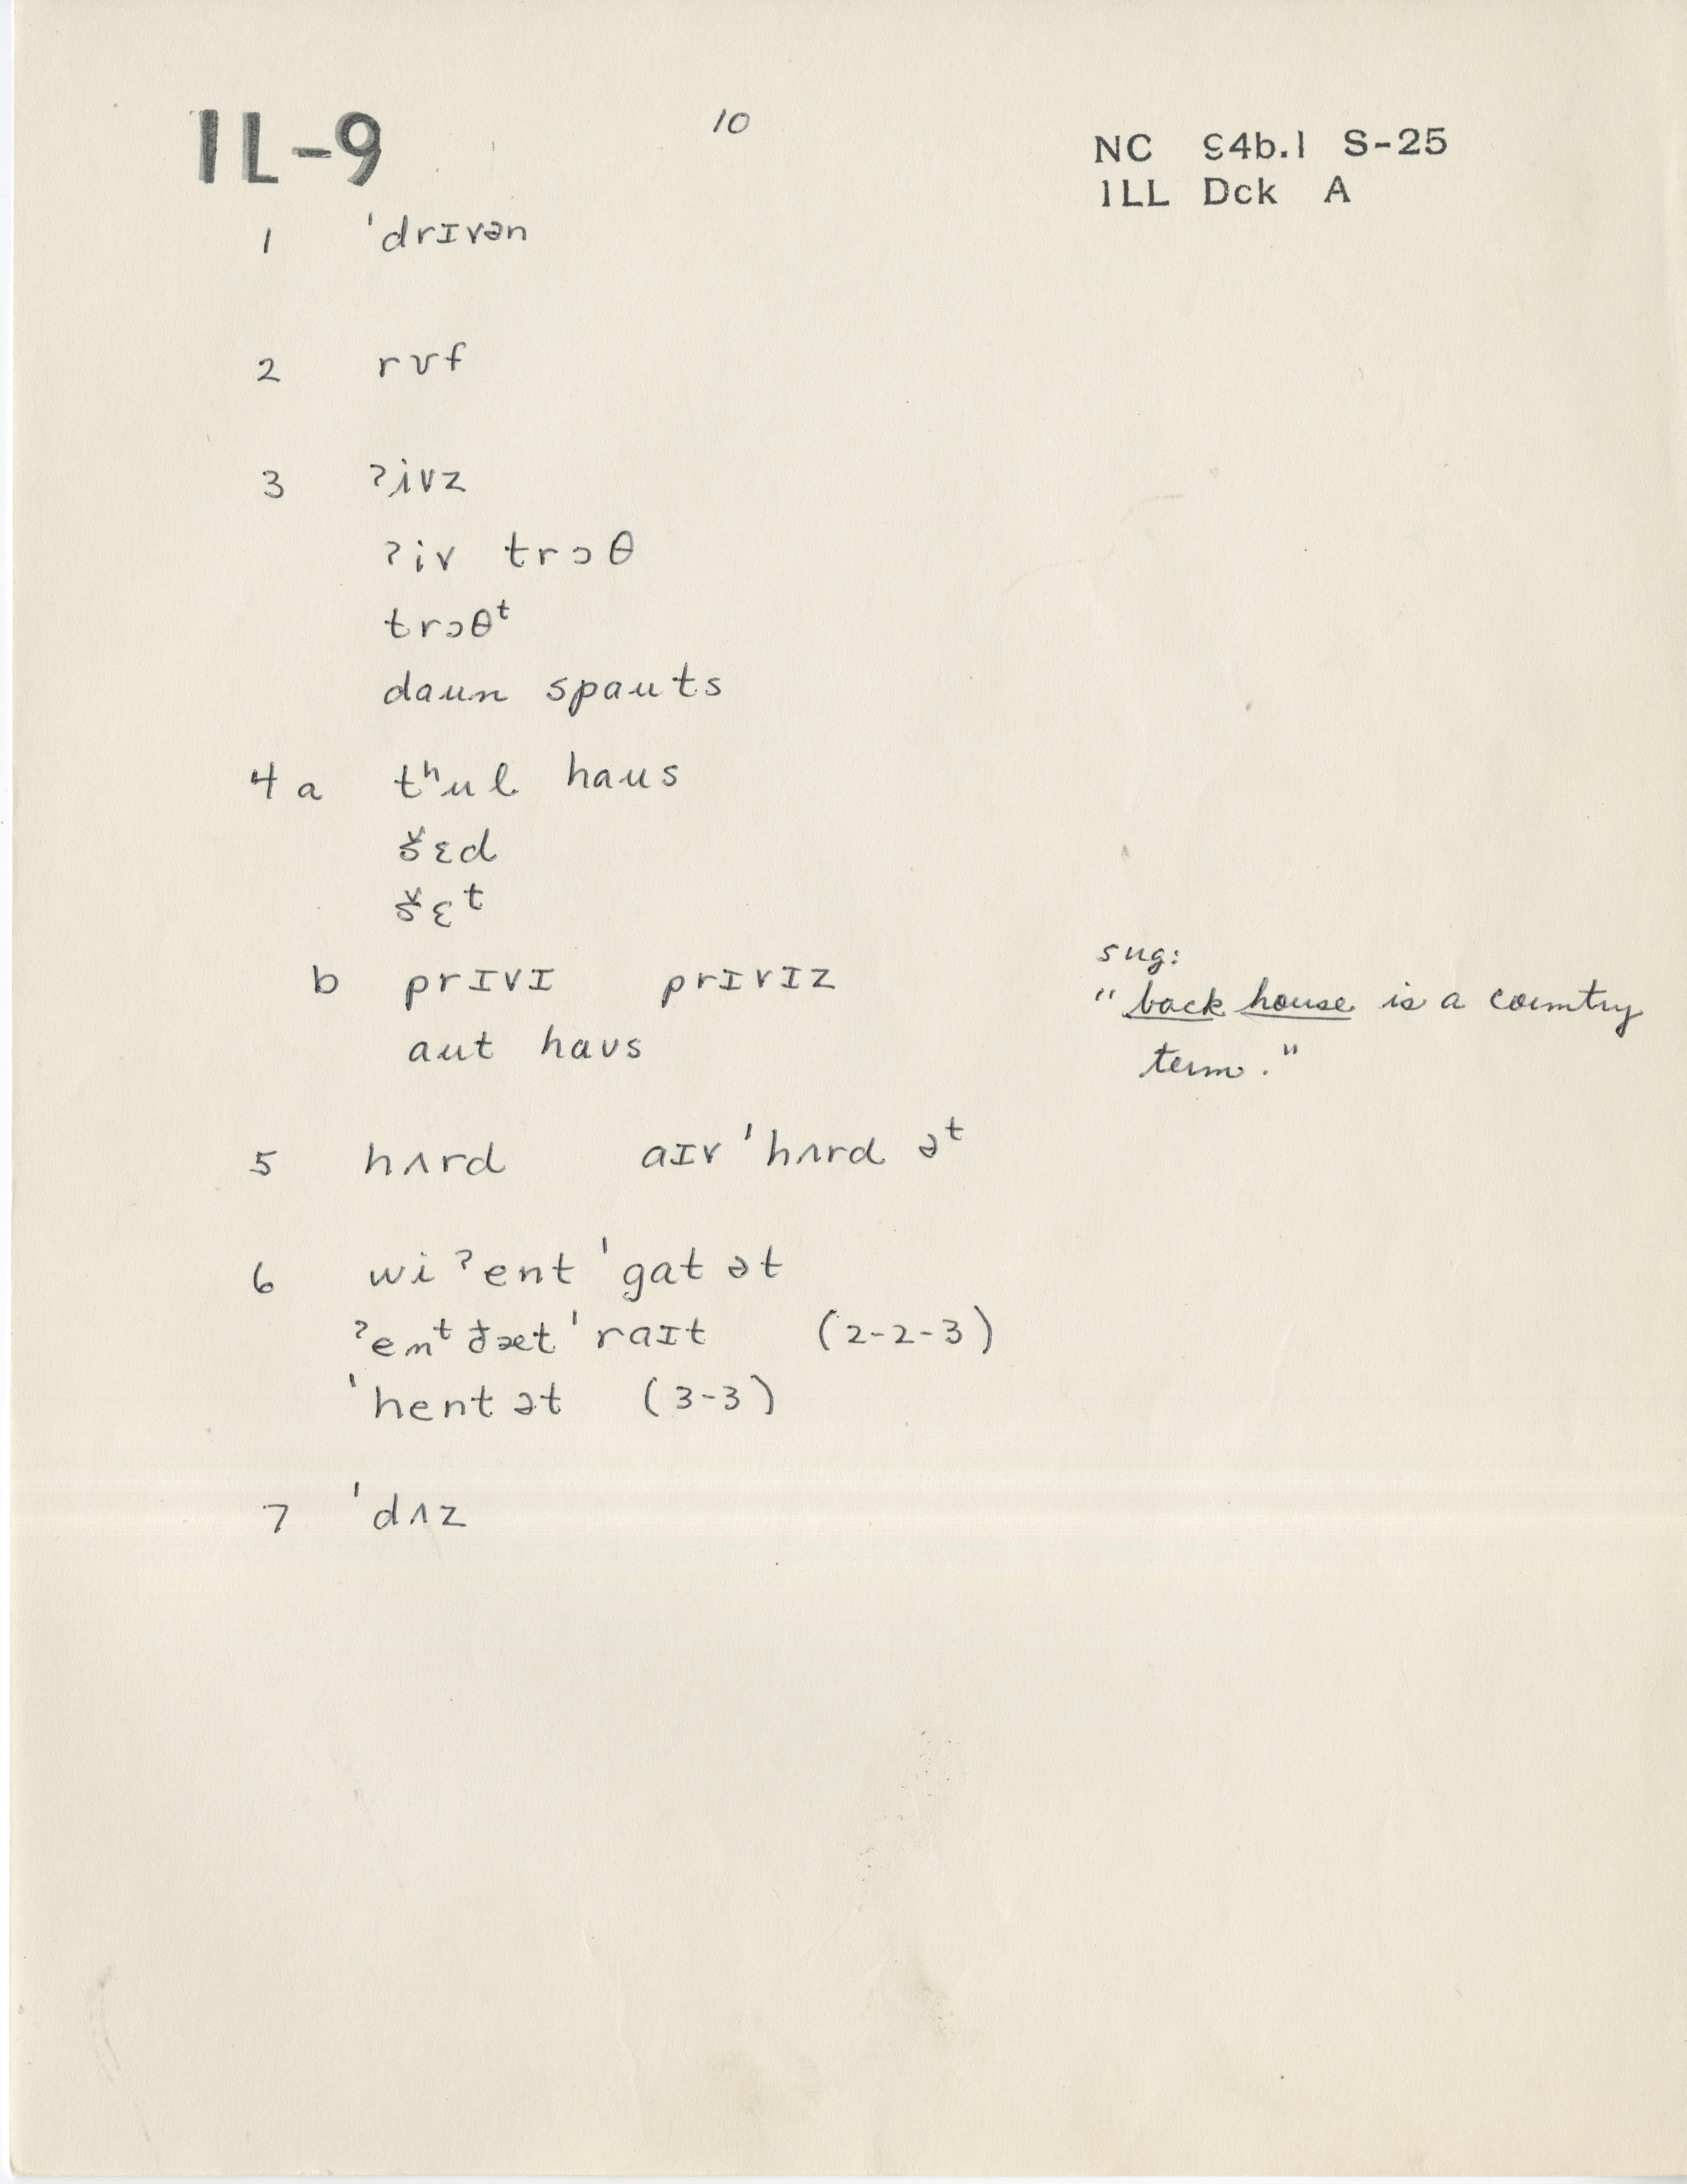 IL-9
10
NC S4b.1 S-25
ILL Dck A
1 ˈdrɪvən
2 rʊf
3 ʔivz
ʔiv trɔθ
trɔθᵗ
daun spauts
4 a tʰul haus
šɛd
šɛᵗ
b prɪvɪ prɪvɪz
aut haʊs
sug:
"back house is a country
term."
5 hʌrd aɪv ˈhʌrd əᵗ
6 wi ʔent ˈgat ət
ʔenᵗ ðæt ˈraɪt (2-2-3)
ˈhent ət (3-3)
7 ˈdʌz